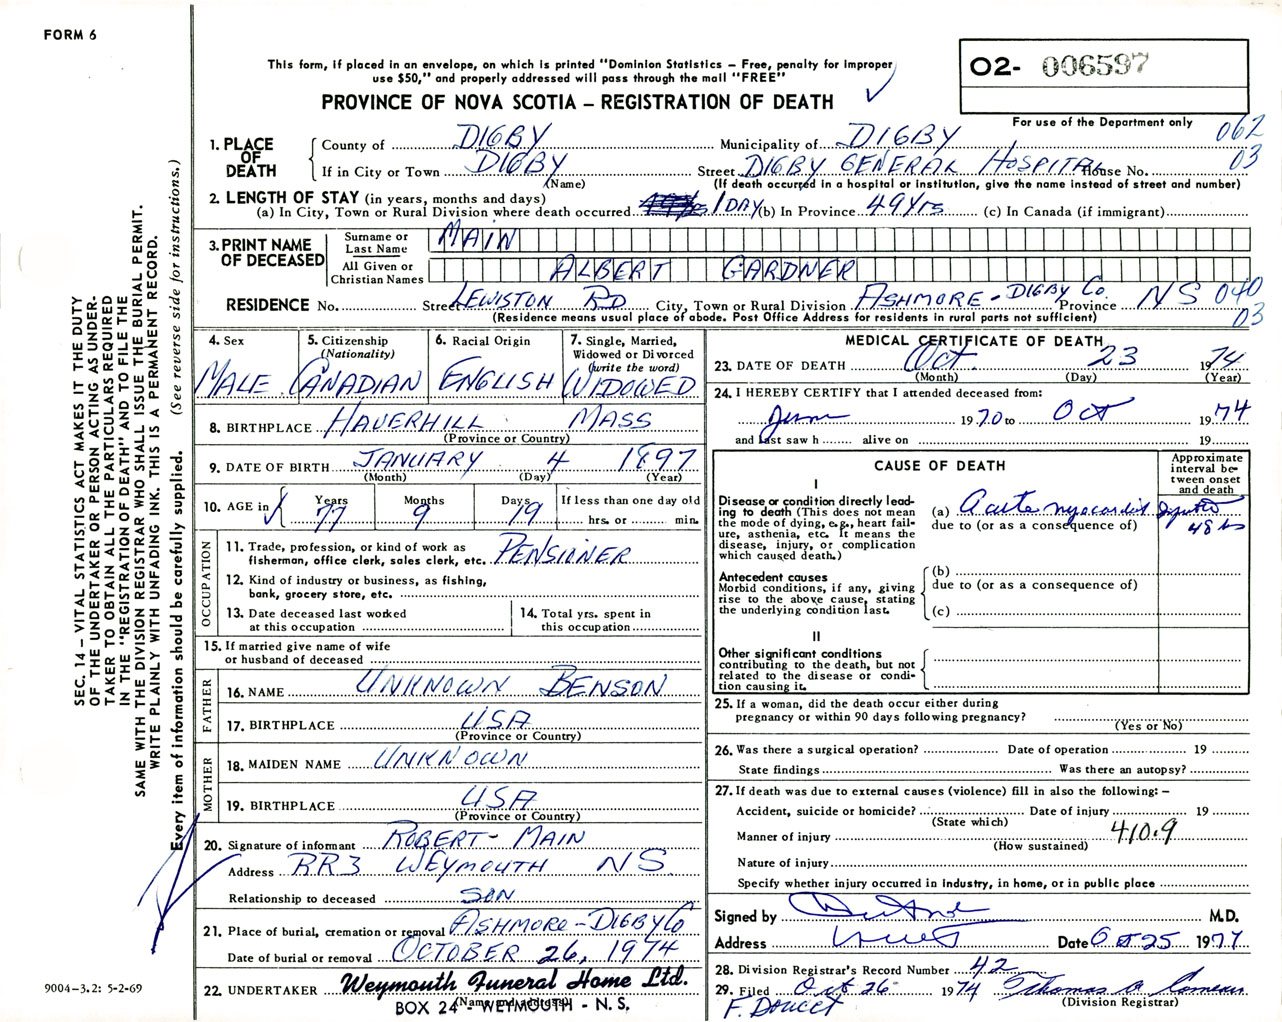 FORM 6
This form, if placed in an envelope, on which is printed "Dominion Statistics – Free, penalty for improper
use $50," and properly addressed will pass through the mail "FREE"
PROVINCE OF NOVA SCOTIA – REGISTRATION OF DEATH
O2- 006597
For use of the Department only
062
03
1. PLACE OF DEATH
County of DIGBY Municipality of DIGBY
If in City or Town DIGBY Street DIGBY GENERAL HOSPITAL House No.
(Name) (If death occurred in a hospital or institution, give the name instead of street and number)
2. LENGTH OF STAY (in years, months and days)
(a) In City, Town or Rural Division where death occurred 1 DAY (b) In Province 49 Yrs (c) In Canada (if immigrant)
3. PRINT NAME OF DECEASED
Surname or Last Name MAIN
All Given or Christian Names ALBERT GARDNER
RESIDENCE No. Street LEWISTON RD City, Town or Rural Division ASHMORE - DIGBY Co. Province NS 040
03
(Residence means usual place of abode. Post Office Address for residents in rural parts not sufficient)
4. Sex
MALE
5. Citizenship
(Nationality)
CANADIAN
6. Racial Origin
ENGLISH
7. Single, Married,
Widowed or Divorced
(write the word)
WIDOWED
8. BIRTHPLACE HAVERHILL MASS
(Province or Country)
9. DATE OF BIRTH JANUARY 4 1897
(Month) (Day) (Year)
10. AGE in Years 77 Months 9 Days 19
If less than one day old
hrs. or min.
OCCUPATION
11. Trade, profession, or kind of work as
fisherman, office clerk, sales clerk, etc. PENSIONER
12. Kind of industry or business, as fishing,
bank, grocery store, etc.
13. Date deceased last worked
at this occupation
14. Total yrs. spent in
this occupation
15. If married give name of wife
or husband of deceased
FATHER
16. NAME UNKNOWN BENSON
17. BIRTHPLACE USA
(Province or Country)
MOTHER
18. MAIDEN NAME UNKNOWN
19. BIRTHPLACE USA
(Province or Country)
20. Signature of informant ROBERT MAIN
Address RR3 WEYMOUTH NS.
Relationship to deceased SON
21. Place of burial, cremation or removal ASHMORE - DIGBY Co
Date of burial or removal OCTOBER 26, 1974
22. UNDERTAKER Weymouth Funeral Home Ltd.
(Name and address)
BOX 24 - WEYMOUTH - N. S.
MEDICAL CERTIFICATE OF DEATH
23. DATE OF DEATH Oct. 23 1974
(Month) (Day) (Year)
24. I HEREBY CERTIFY that I attended deceased from:
June 1970 to Oct 1974
and last saw h alive on 19
CAUSE OF DEATH
Approximate
interval be-
tween onset
and death
I
Disease or condition directly lead-
ing to death (This does not mean
the mode of dying, e.g., heart fail-
ure, asthenia, etc. It means the
disease, injury, or complication
which caused death.)
(a) Acute myocardial
due to (or as a consequence of)
48 hs
Antecedent causes
Morbid conditions, if any, giving
rise to the above cause, stating
the underlying condition last.
(b)
due to (or as a consequence of)
(c)
II
Other significant conditions
contributing to the death, but not
related to the disease or condi-
tion causing it.
25. If a woman, did the death occur either during
pregnancy or within 90 days following pregnancy?
(Yes or No)
26. Was there a surgical operation? Date of operation 19
State findings Was there an autopsy?
27. If death was due to external causes (violence) fill in also the following: –
Accident, suicide or homicide? Date of injury 19
(State which)
Manner of injury 410.9
(How sustained)
Nature of injury
Specify whether injury occurred in Industry, in home, or in public place
Signed by M.D.
Address Date Oct 25 1977
28. Division Registrar's Record Number 42
29. Filed Oct 26 1974 Thomas A Comeau
(Division Registrar)
F. DOUCET
SEC. 14 – VITAL STATISTICS ACT MAKES IT THE DUTY
OF THE UNDERTAKER OR PERSON ACTING AS UNDER-
TAKER TO OBTAIN ALL THE PARTICULARS REQUIRED
IN THE "REGISTRATION OF DEATH" AND TO FILE THE
SAME WITH THE DIVISION REGISTRAR WHO SHALL ISSUE THE BURIAL PERMIT.
WRITE PLAINLY WITH UNFADING INK. THIS IS A PERMANENT RECORD.
Every item of information should be carefully supplied. (See reverse side for instructions.)
9004-3.2: 5-2-69